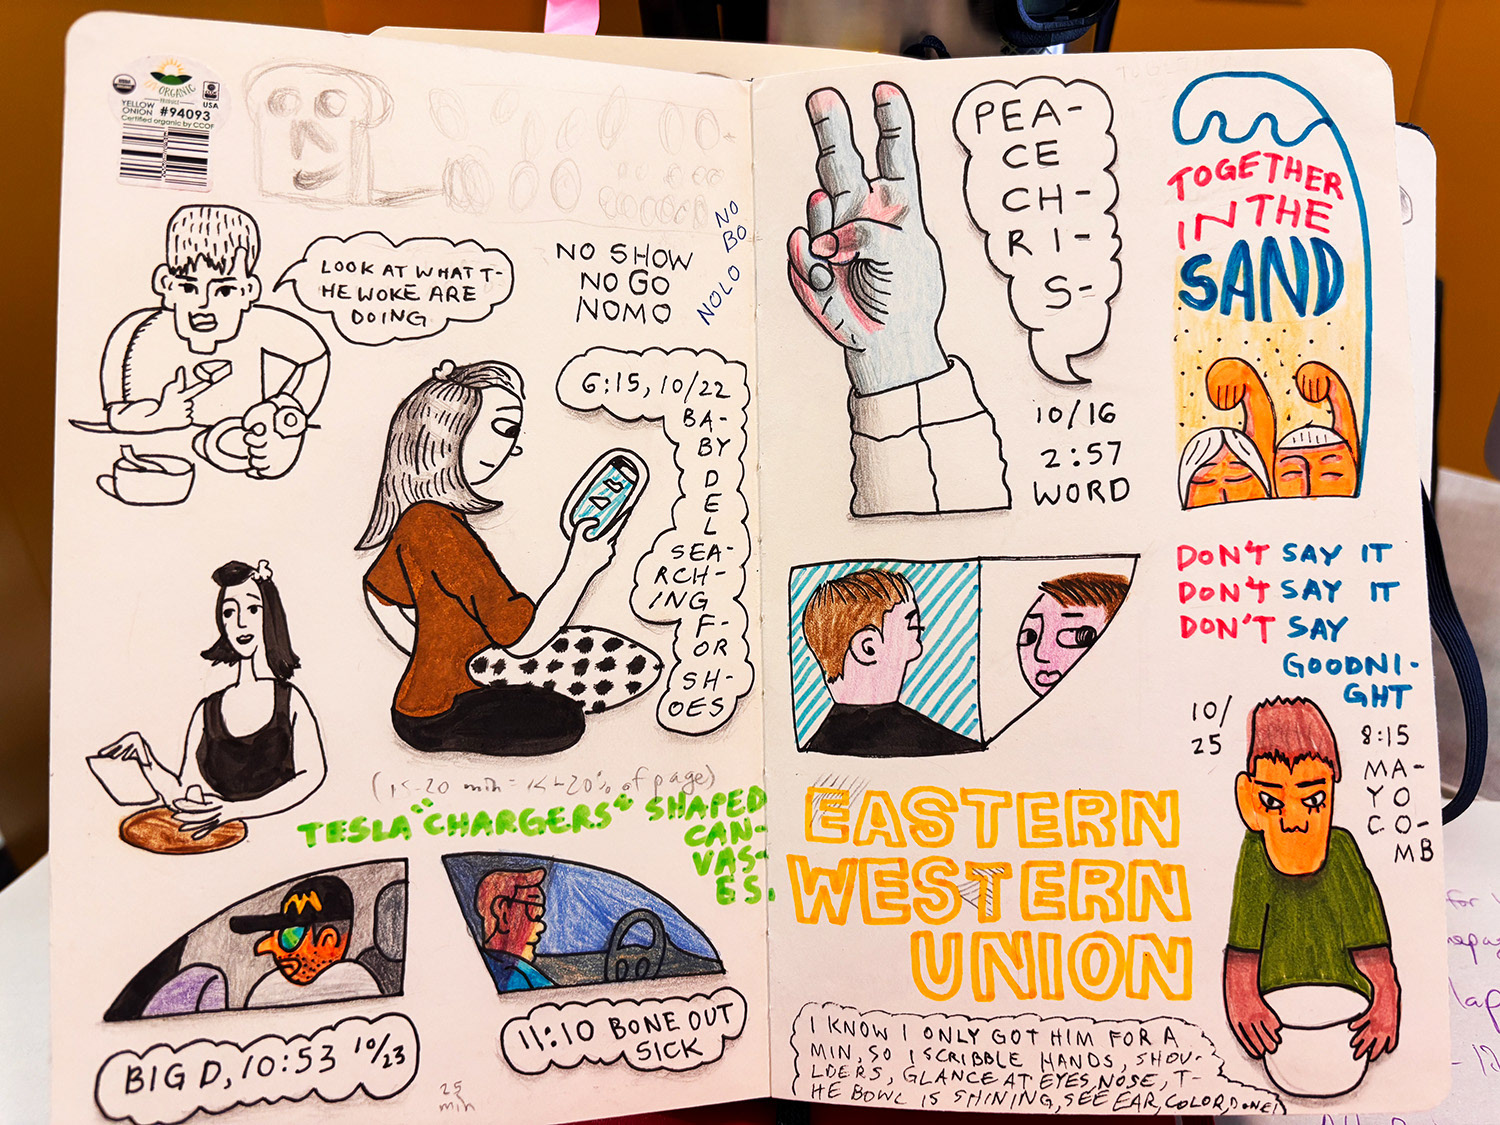 ORGANIC
PRODUCE
USA
YELLOW
ONION #94093
Certified organic by CCOF
LOOK AT WHAT T-
HE WOKE ARE
DOING
NO SHOW
NO GO
NOMO
NO
BO
NOLO
6:15, 10/22
BA-
BY
D
E
L
SEA-
RCH-
ING
F-
OR
SH-
OES
TESLA "CHARGERS" SHAPED
CAN-
VAS-
ES.
BIG D, 10:53 10/23
11:10 BONE OUT
SICK
25
min
PEA-
CE
CH-
RI-
S-
10/16
2:57
WORD
TOGETHER
IN THE
SAND
DON'T SAY IT
DON'T SAY IT
DON'T SAY
GOODNI-
GHT
10/
25
8:15
MA-
YO
CO-
MB
EASTERN
WESTERN
UNION
I KNOW I ONLY GOT HIM FOR A
MIN, SO I SCRIBBLE HANDS, SHOU-
LDERS, GLANCE AT EYES, NOSE, T-
HE BOWL IS SHINING, SEE EAR, COLOR, DONE!